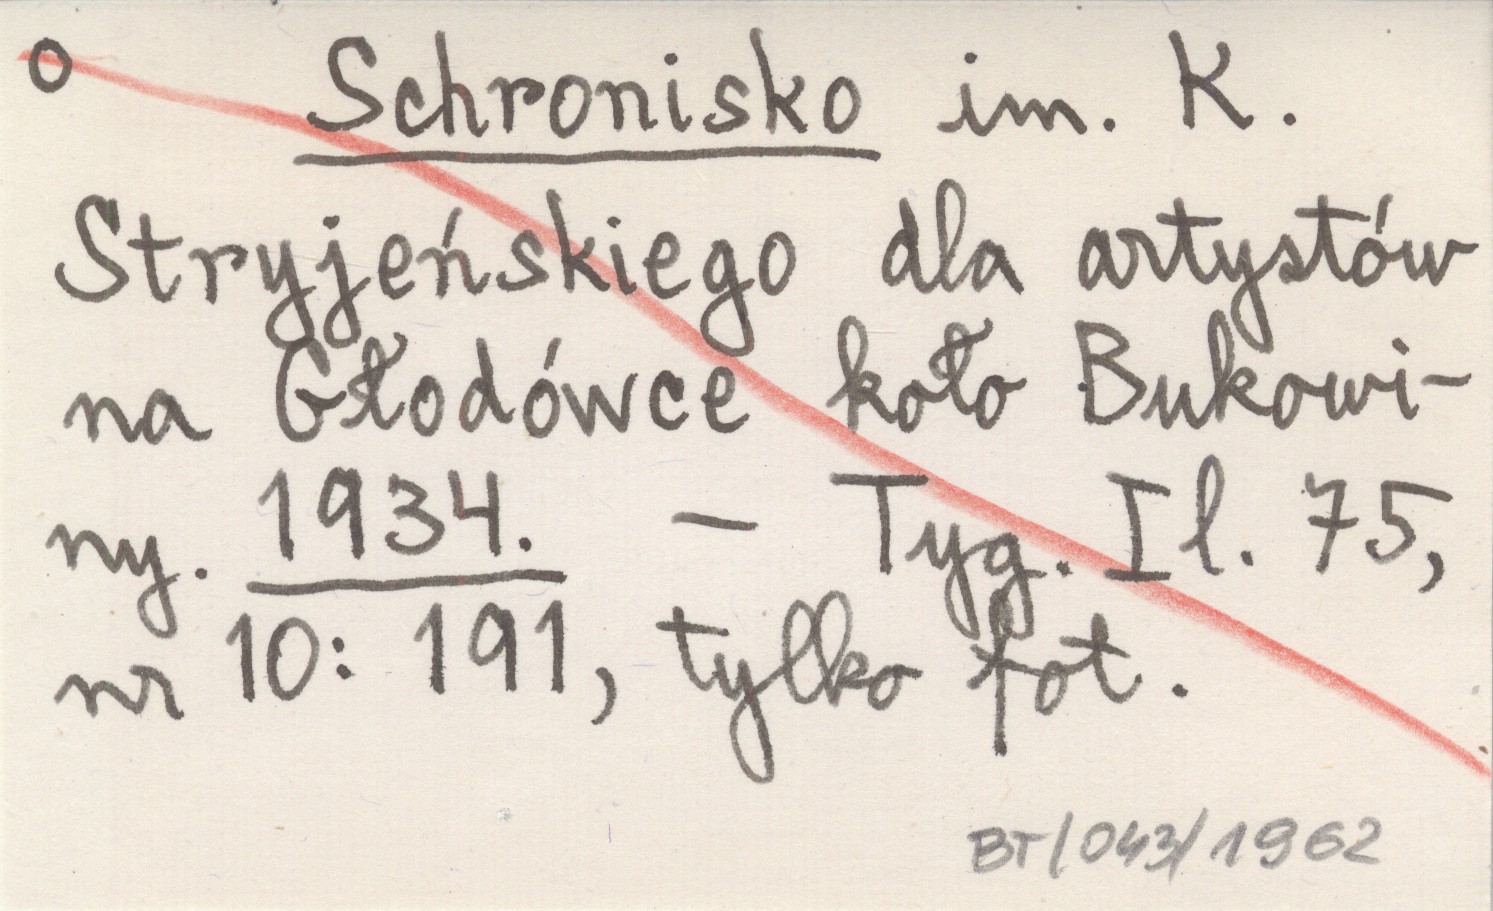 o Schronisko im. K.
Stryjeńskiego dla artystów
na Głodówce koło Bukowi-
ny. 1934. – Tyg. Il. 75,
nr 10: 191, tylko fot.
BT/043/1962